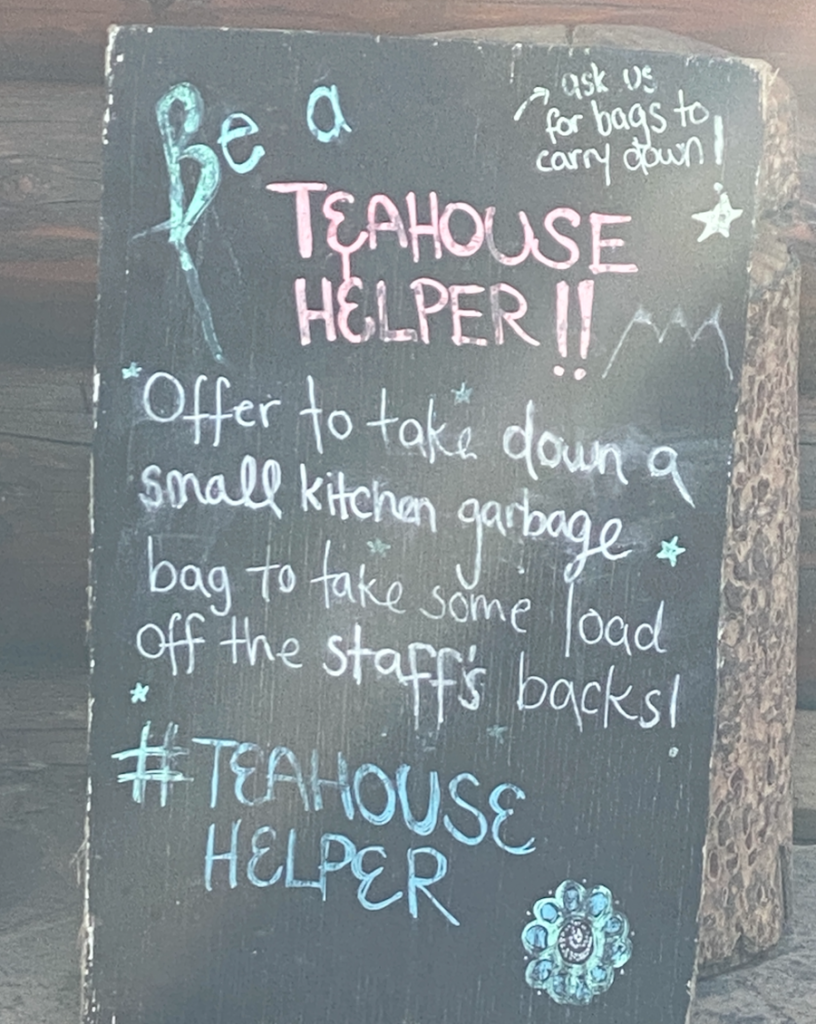 Be a
ask us
for bags to
carry down!
TEAHOUSE
HELPER!!
Offer to take down a
small kitchen garbage
bag to take some load
off the staff's backs!
#TEAHOUSE
HELPER